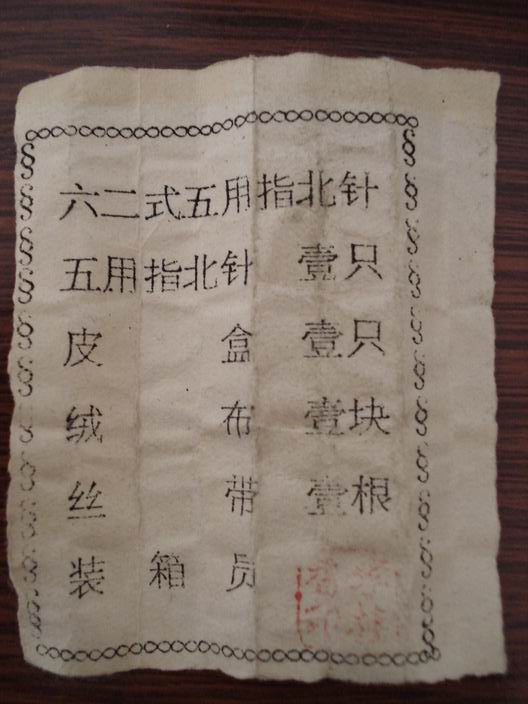 六二式五用指北针
五用指北针 壹只
皮 盒 壹只
绒 布 壹块
丝 带 壹根
装 箱 员